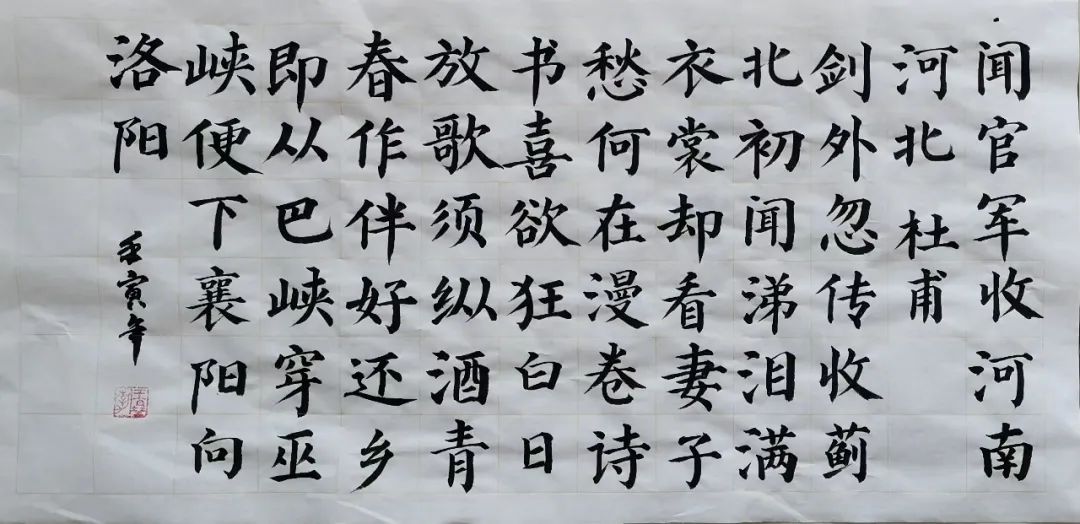 闻官军收河南
河北杜甫
剑外忽传收蓟
北初闻涕泪满
衣裳却看妻子
愁何在漫卷诗
书喜欲狂白日
放歌须纵酒青
春作伴好还乡
即从巴峡穿巫
峡便下襄阳向
洛阳
壬寅年